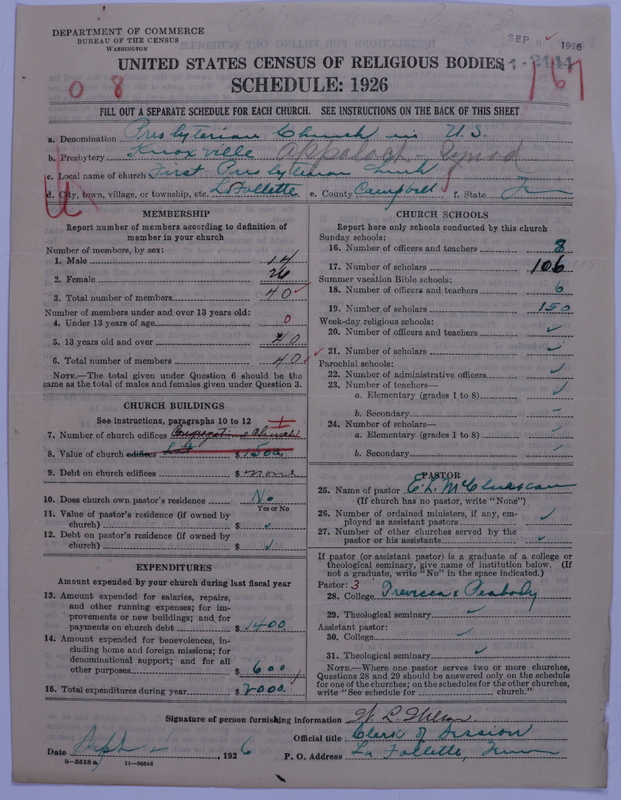 DEPARTMENT OF COMMERCE
BUREAU OF THE CENSUS
WASHINGTON
SEP 1926
UNITED STATES CENSUS OF RELIGIOUS BODIES
SCHEDULE: 1926
0 8
FILL OUT A SEPARATE SCHEDULE FOR EACH CHURCH. SEE INSTRUCTIONS ON THE BACK OF THIS SHEET
a. Denomination Presbyterian Church in U.S.
b. Presbytery Knoxville Appalach Synod
c. Local name of church First Presbyterian Church
d. City, town, village, or township, etc. La Follette e. County Campbell f. State Tenn
MEMBERSHIP
Report number of members according to definition of
member in your church
Number of members, by sex:
1. Male 14
2. Female 26
3. Total number of members 40 ✓
Number of members under and over 13 years old:
4. Under 13 years of age 0
5. 13 years old and over 40
6. Total number of members 40 ✓
NOTE.—The total given under Question 6 should be the
same as the total of males and females given under Question 3.
CHURCH BUILDINGS
See instructions, paragraphs 10 to 12
7. Number of church edifices
8. Value of church edifices Lot $ 1500
9. Debt on church edifices $ none
10. Does church own pastor's residence No
Yes or No
11. Value of pastor's residence (if owned by
church) $ ✓
12. Debt on pastor's residence (if owned by
church) $ ✓
EXPENDITURES
Amount expended by your church during last fiscal year
13. Amount expended for salaries, repairs,
and other running expenses; for im-
provements or new buildings; and for
payments on church debt $ 1400
14. Amount expended for benevolences, in-
cluding home and foreign missions; for
denominational support; and for all
other purposes $ 600
15. Total expenditures during year $ 2000
CHURCH SCHOOLS
Report here only schools conducted by this church
Sunday schools:
16. Number of officers and teachers 8
17. Number of scholars 106
Summer vacation Bible schools:
18. Number of officers and teachers 6
19. Number of scholars 150
Week-day religious schools:
20. Number of officers and teachers ✓
21. Number of scholars ✓
Parochial schools:
22. Number of administrative officers ✓
23. Number of teachers—
a. Elementary (grades 1 to 8) ✓
b. Secondary
24. Number of scholars—
a. Elementary (grades 1 to 8) ✓
b. Secondary ✓
PASTOR
25. Name of pastor
(If church has no pastor, write "None")
26. Number of ordained ministers, if any, em-
ployed as assistant pastors ✓
27. Number of other churches served by the
pastor or his assistants ✓
If pastor (or assistant pastor) is a graduate of a college or
theological seminary, give name of institution below. (If
not a graduate, write "No" in the space indicated.)
Pastor: 3
28. College Trevecca & Peabody
29. Theological seminary ✓
Assistant pastor:
30. College ✓
31. Theological seminary ✓
NOTE.—Where one pastor serves two or more churches,
Questions 28 and 29 should be answered only on the schedule
for one of the churches; on the schedules for the other churches,
write "See schedule for church."
Signature of person furnishing information
Official title Clerk of Session
Date Sept , 1926 P. O. Address La Follette, Tenn
8-5518 a 11-20545